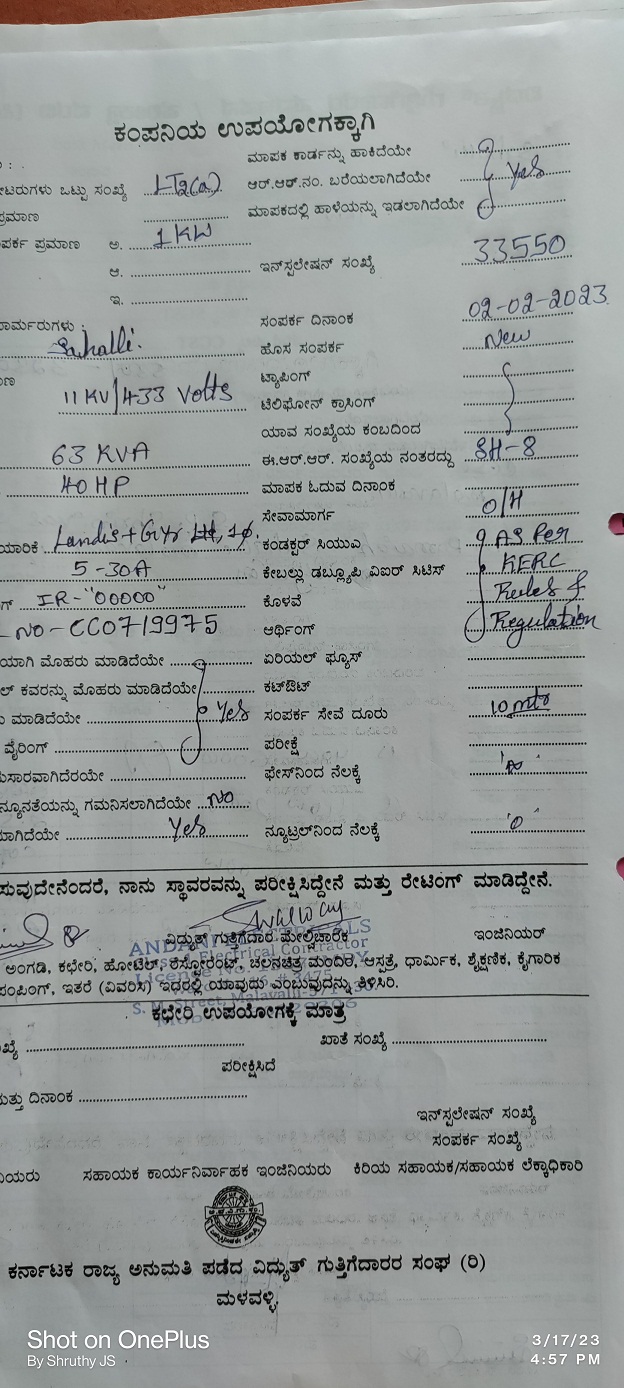 ಕಂಪನಿಯ ಉಪಯೋಗಕ್ಕಾಗಿ
ಮಾಪಕ ಕಾರ್ಡನ್ನು ಹಾಕಿದೆಯೇ
ಟರುಗಳು ಒಟ್ಟು ಸಂಖ್ಯೆ LT2(a) ಆರ್.ಆರ್.ನಂ. ಬರೆಯಲಾಗಿದೆಯೇ Yes
ಪ್ರಮಾಣ ಮಾಪಕದಲ್ಲಿ ಹಾಳೆಯನ್ನು ಇಡಲಾಗಿದೆಯೇ
ಪರ್ಕ ಪ್ರಮಾಣ ಅ. 1KW
ಆ. ಇನ್ಸ್ಟಲೇಷನ್ ಸಂಖ್ಯೆ 33550
ಇ.
ಾರ್ಮರುಗಳು : ಸಂಪರ್ಕ ದಿನಾಂಕ 02-02-2023
ಹೊಸ ಸಂಪರ್ಕ New
ಟ್ಯಾಪಿಂಗ್
11 KV/433 Volts ಟೆಲಿಫೋನ್ ಕ್ರಾಸಿಂಗ್
ಯಾವ ಸಂಖ್ಯೆಯ ಕಂಬದಿಂದ
63 KVA ಈ.ಆರ್.ಆರ್. ಸಂಖ್ಯೆಯ ನಂತರದ್ದು SH-8
40 HP ಮಾಪಕ ಓದುವ ದಿನಾಂಕ
ಸೇವಾಮಾರ್ಗ O/H
ಯಾರಿಕೆ Landis+Gyr 1φ. ಕಂಡಕ್ಟರ್ ಸಿಯುಎ As Per
5-30A ಕೇಬಲ್ಲು ಡಬ್ಲ್ಯೂಪಿ ವಿಐರ್ ಸಿಟಿಸ್ KERC
ಗ್ IR-"00000" ಕೊಳವೆ Rules &
NO-CC0719975 ಆರ್ಥಿಂಗ್ Regulation
ಯಾಗಿ ಮೊಹರು ಮಾಡಿದೆಯೇ ಏರಿಯಲ್ ಫ್ಯೂಸ್
ಲ್ ಕವರನ್ನು ಮೊಹರು ಮಾಡಿದೆಯೇ ಕಟ್‌ಔಟ್
ು ಮಾಡಿದೆಯೇ Yes ಸಂಪರ್ಕ ಸೇವೆ ದೂರು 10 mtr
ವೈರಿಂಗ್ ಪರೀಕ್ಷೆ
ುಸಾರವಾಗಿದೆರಯೇ ಫೇಸ್‌ನಿಂದ ನೆಲಕ್ಕೆ
ನ್ಯೂನತೆಯನ್ನು ಗಮನಿಸಲಾಗಿದೆಯೇ NO
ಾಗಿದೆಯೇ Yes ನ್ಯೂಟ್ರಲ್‌ನಿಂದ ನೆಲಕ್ಕೆ '0'
ಸುವುದೇನೆಂದರೆ, ನಾನು ಸ್ಥಾವರವನ್ನು ಪರೀಕ್ಷಿಸಿದ್ದೇನೆ ಮತ್ತು ರೇಟಿಂಗ್ ಮಾಡಿದ್ದೇನೆ.
ವಿದ್ಯುತ್ ಗುತ್ತಿಗೆದಾರ ಮೇಲ್ವಿಚಾರಕ ಇಂಜಿನಿಯರ್
Electrical Contractor
ಅಂಗಡಿ, ಕಛೇರಿ, ಹೋಟೆಲ್, ರೆಸ್ಟೋರೆಂಟ್, ಚಲನಚಿತ್ರ ಮಂದಿರ, ಆಸ್ಪತ್ರೆ, ಧಾರ್ಮಿಕ, ಶೈಕ್ಷಣಿಕ, ಕೈಗಾರಿಕ
ಪಂಪಿಂಗ್, ಇತರೆ (ವಿವರಿಸಿ) ಇದರಲ್ಲಿ ಯಾವುದು ಎಂಬುವುದನ್ನು ತಿಳಿಸಿರಿ.
ಕಛೇರಿ ಉಪಯೋಗಕ್ಕೆ ಮಾತ್ರ
ಖ್ಯೆ ಖಾತೆ ಸಂಖ್ಯೆ
ಪರೀಕ್ಷಿಸಿದೆ
ಮತ್ತು ದಿನಾಂಕ
ಇನ್ಸ್ಟಲೇಷನ್ ಸಂಖ್ಯೆ
ಸಂಪರ್ಕ ಸಂಖ್ಯೆ
ನಿಯರು ಸಹಾಯಕ ಕಾರ್ಯನಿರ್ವಾಹಕ ಇಂಜಿನಿಯರು ಕಿರಿಯ ಸಹಾಯಕ/ಸಹಾಯಕ ಲೆಕ್ಕಾಧಿಕಾರಿ
ಕರ್ನಾಟಕ ರಾಜ್ಯ ಅನುಮತಿ ಪಡೆದ ವಿದ್ಯುತ್ ಗುತ್ತಿಗೆದಾರರ ಸಂಘ (ರಿ)
ಮಳವಳ್ಳಿ.
Shot on OnePlus 3/17/23
By Shruthy JS 4:57 PM